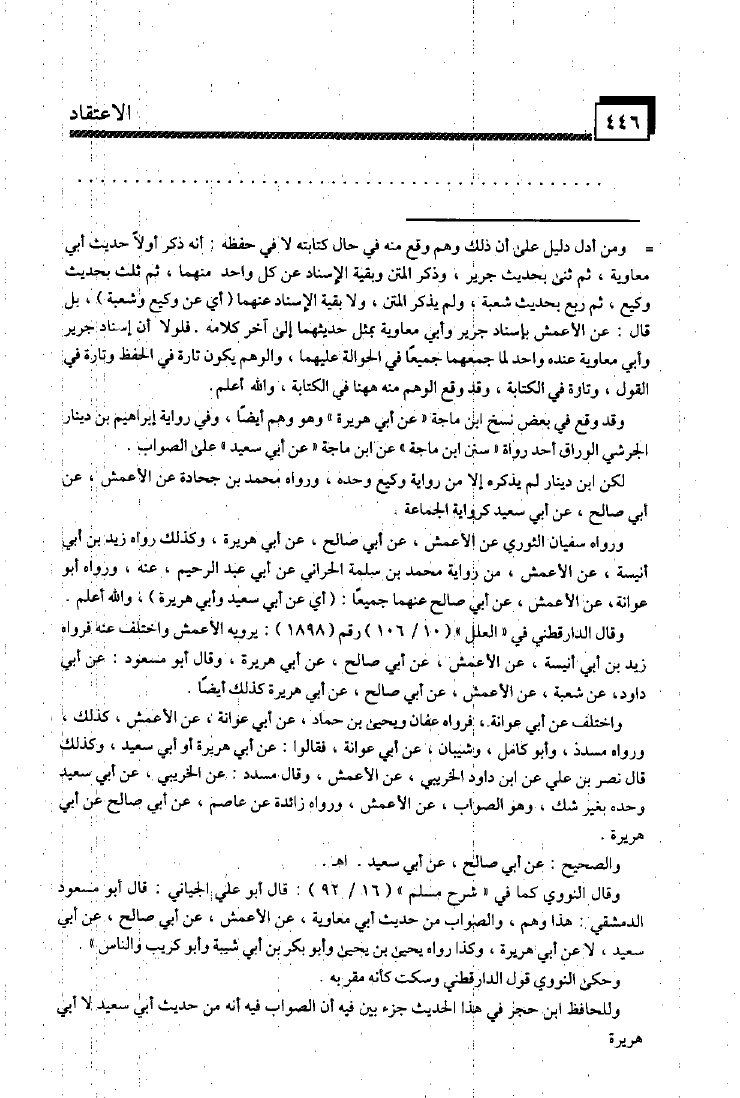 ٤٤٦
الاعتقاد
. . . . . . . . . . . . . . . . . . . . . . . . . . . . . . . . . . . . . . . . . .
= ومن أدل دليل على أن ذلك وهم وقع منه في حال كتابته لا في حفظه ; أنه ذكر أولاً حديث أبي
معاوية ، ثم ثنى بحديث جرير ، وذكر المتن وبقية الإسناد عن كل واحد منهما ، ثم ثلث بحديث
وكيع ، ثم ربع بحديث شعبة ، ولم يذكر المتن ، ولا بقية الإسناد عنهما ( أي عن وكيع وشعبة ) ، بل
قال : عن الأعمش بإسناد جرير وأبي معاوية بمثل حديثهما إلى آخر كلامه . فلولا أن إسناد جرير
وأبي معاوية عنده واحد لما جمعهما جميعًا في الحوالة عليهما ، والوهم يكون تارة في الحفظ وتارة في
القول ، وتارة في الكتابة ، وقد وقع الوهم منه ههنا في الكتابة ، والله أعلم.
وقد وقع في بعض نسخ ابن ماجة « عن أبي هريرة » وهو وهم أيضًا ، وفي رواية إبراهيم بن دينار
الجرشي الوراق أحد رواة « سنن ابن ماجة » عن ابن ماجة « عن أبي سعيد » على الصواب .
لكن ابن دينار لم يذكره إلا من رواية وكيع وحده ، ورواه محمد بن جحادة عن الأعمش ، عن
أبي صالح ، عن أبي سعيد كرواية الجماعة .
ورواه سفيان الثوري عن الأعمش ، عن أبي صالح ، عن أبي هريرة ، وكذلك رواه زيد بن أبي
أنيسة ، عن الأعمش ، من رواية محمد بن سلمة الحراني عن أبي عبد الرحيم ، عنه ، ورواه أبو
عوانة، عن الأعمش ، عن أبي صالح عنهما جميعًا : ( أي عن أبي سعيد وأبي هريرة ) ، والله أعلم .
وقال الدارقطني في « العلل » ( ١٠ / ١٠٦ ) رقم ( ١٨٩٨ ) : يرويه الأعمش واختلف عنه فرواه
زيد بن أبي أنيسة ، عن الأعمش ، عن أبي صالح ، عن أبي هريرة ، وقال أبو مسعود : عن أبي
داود، عن شعبة ، عن الأعمش ، عن أبي صالح ، عن أبي هريرة كذلك أيضًا .
واختلف عن أبي عوانة ، فرواه عفان ويحيى بن حماد ، عن أبي عوانة ، عن الأعمش ، كذلك ،
ورواه مسدد ، وأبو كامل ، وشيبان ، عن أبي عوانة ، فقالوا : عن أبي هريرة أو أبي سعيد ، وكذلك
قال نصر بن علي عن ابن داود الخريبي ، عن الأعمش ، وقال مسدد : عن الخريبي ، عن أبي سعيد
وحده بغير شك ، وهو الصواب ، عن الأعمش ، ورواه زائدة عن عاصم ، عن أبي صالح عن أبي
هريرة .
والصحيح : عن أبي صالح ، عن أبي سعيد . اهـ .
وقال النووي كما في « شرح مسلم » ( ١٦ / ٩٢ ) : قال أبو علي الجياني : قال أبو مسعود
الدمشقي : هذا وهم ، والصواب من حديث أبي معاوية ، عن الأعمش ، عن أبي صالح ، عن أبي
سعيد ، لا عن أبي هريرة ، وكذا رواه يحيى بن يحيى وأبو بكر بن أبي شيبة وأبو كريب والناس » .
وحكى النووي قول الدارقطني وسكت كأنه مقر به .
وللحافظ ابن حجر في هذا الحديث جزء بين فيه أن الصواب فيه أنه من حديث أبي سعيد لا أبي
هريرة